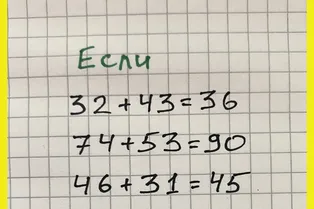 Если
32+43=36
74+53=90
46+31=45